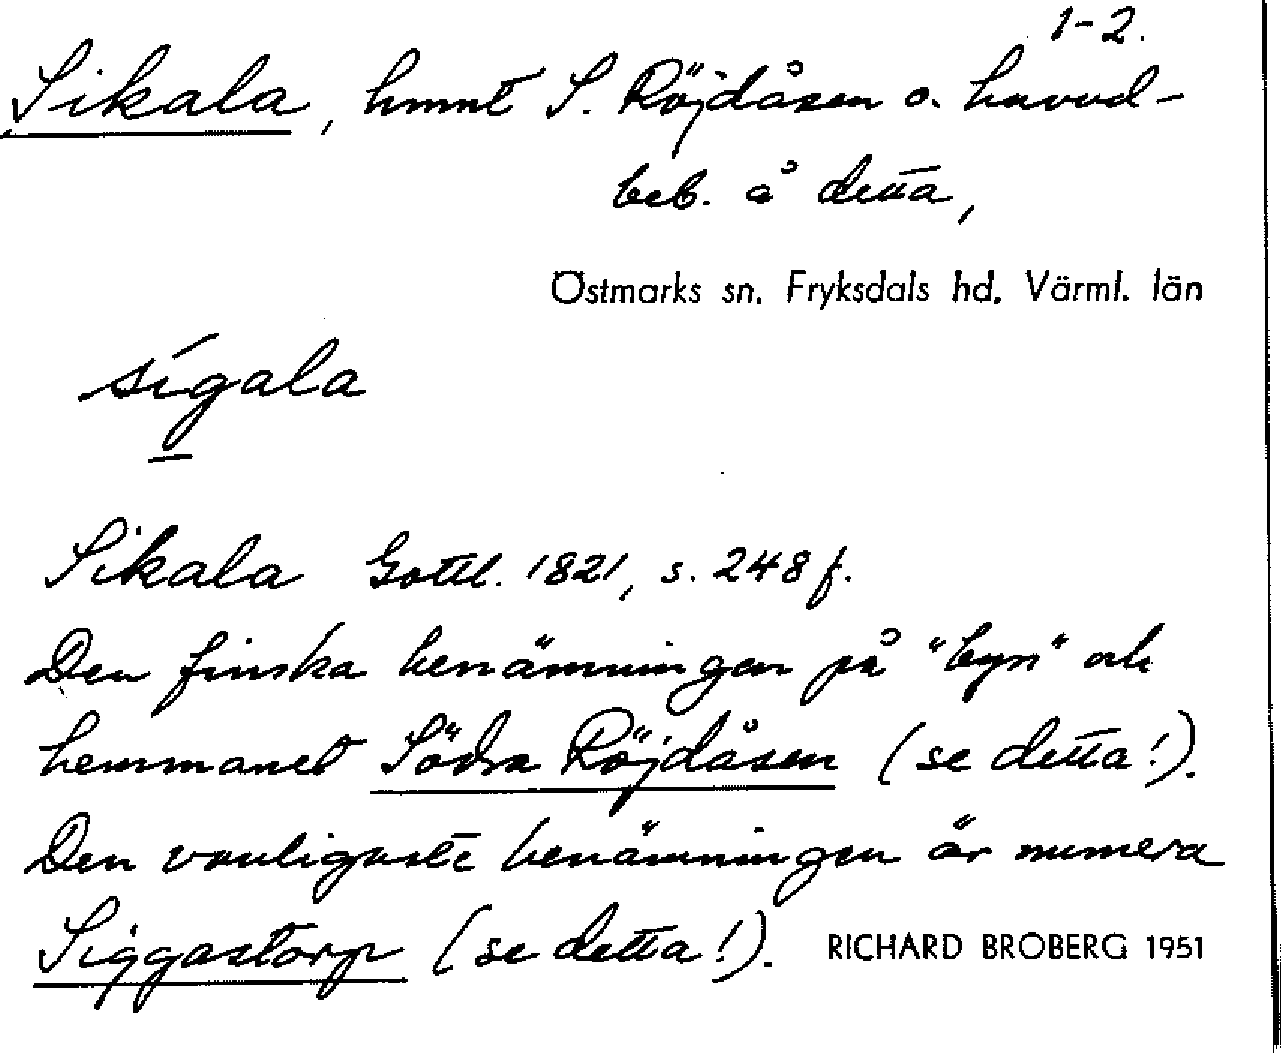 1-2.
Sikala, hmnt S. Röjdåsen o. huvud-
beb. å detta,
Östmarks sn. Fryksdals hd. Värml. län
sígala
Sikala Gottl. 1821, s. 248 f.
Den finska benämningen på "byn" och
hemmanet Södra Röjdåsen (se detta!).
Den vanligaste benämningen är numera
Siggastorp (se detta!). RICHARD BROBERG 1951